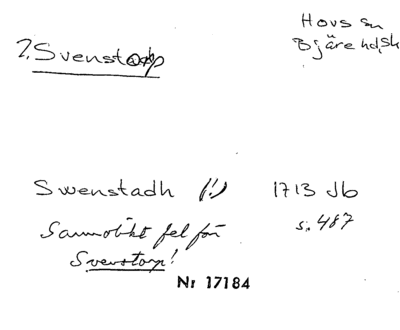 Hovs sn
2. Svenstorp
Bjäre hd, sk
Swenstadh (!) 1713 Jb
s. 487
Sannolikt fel för
Svenstorp!
Nr 17184